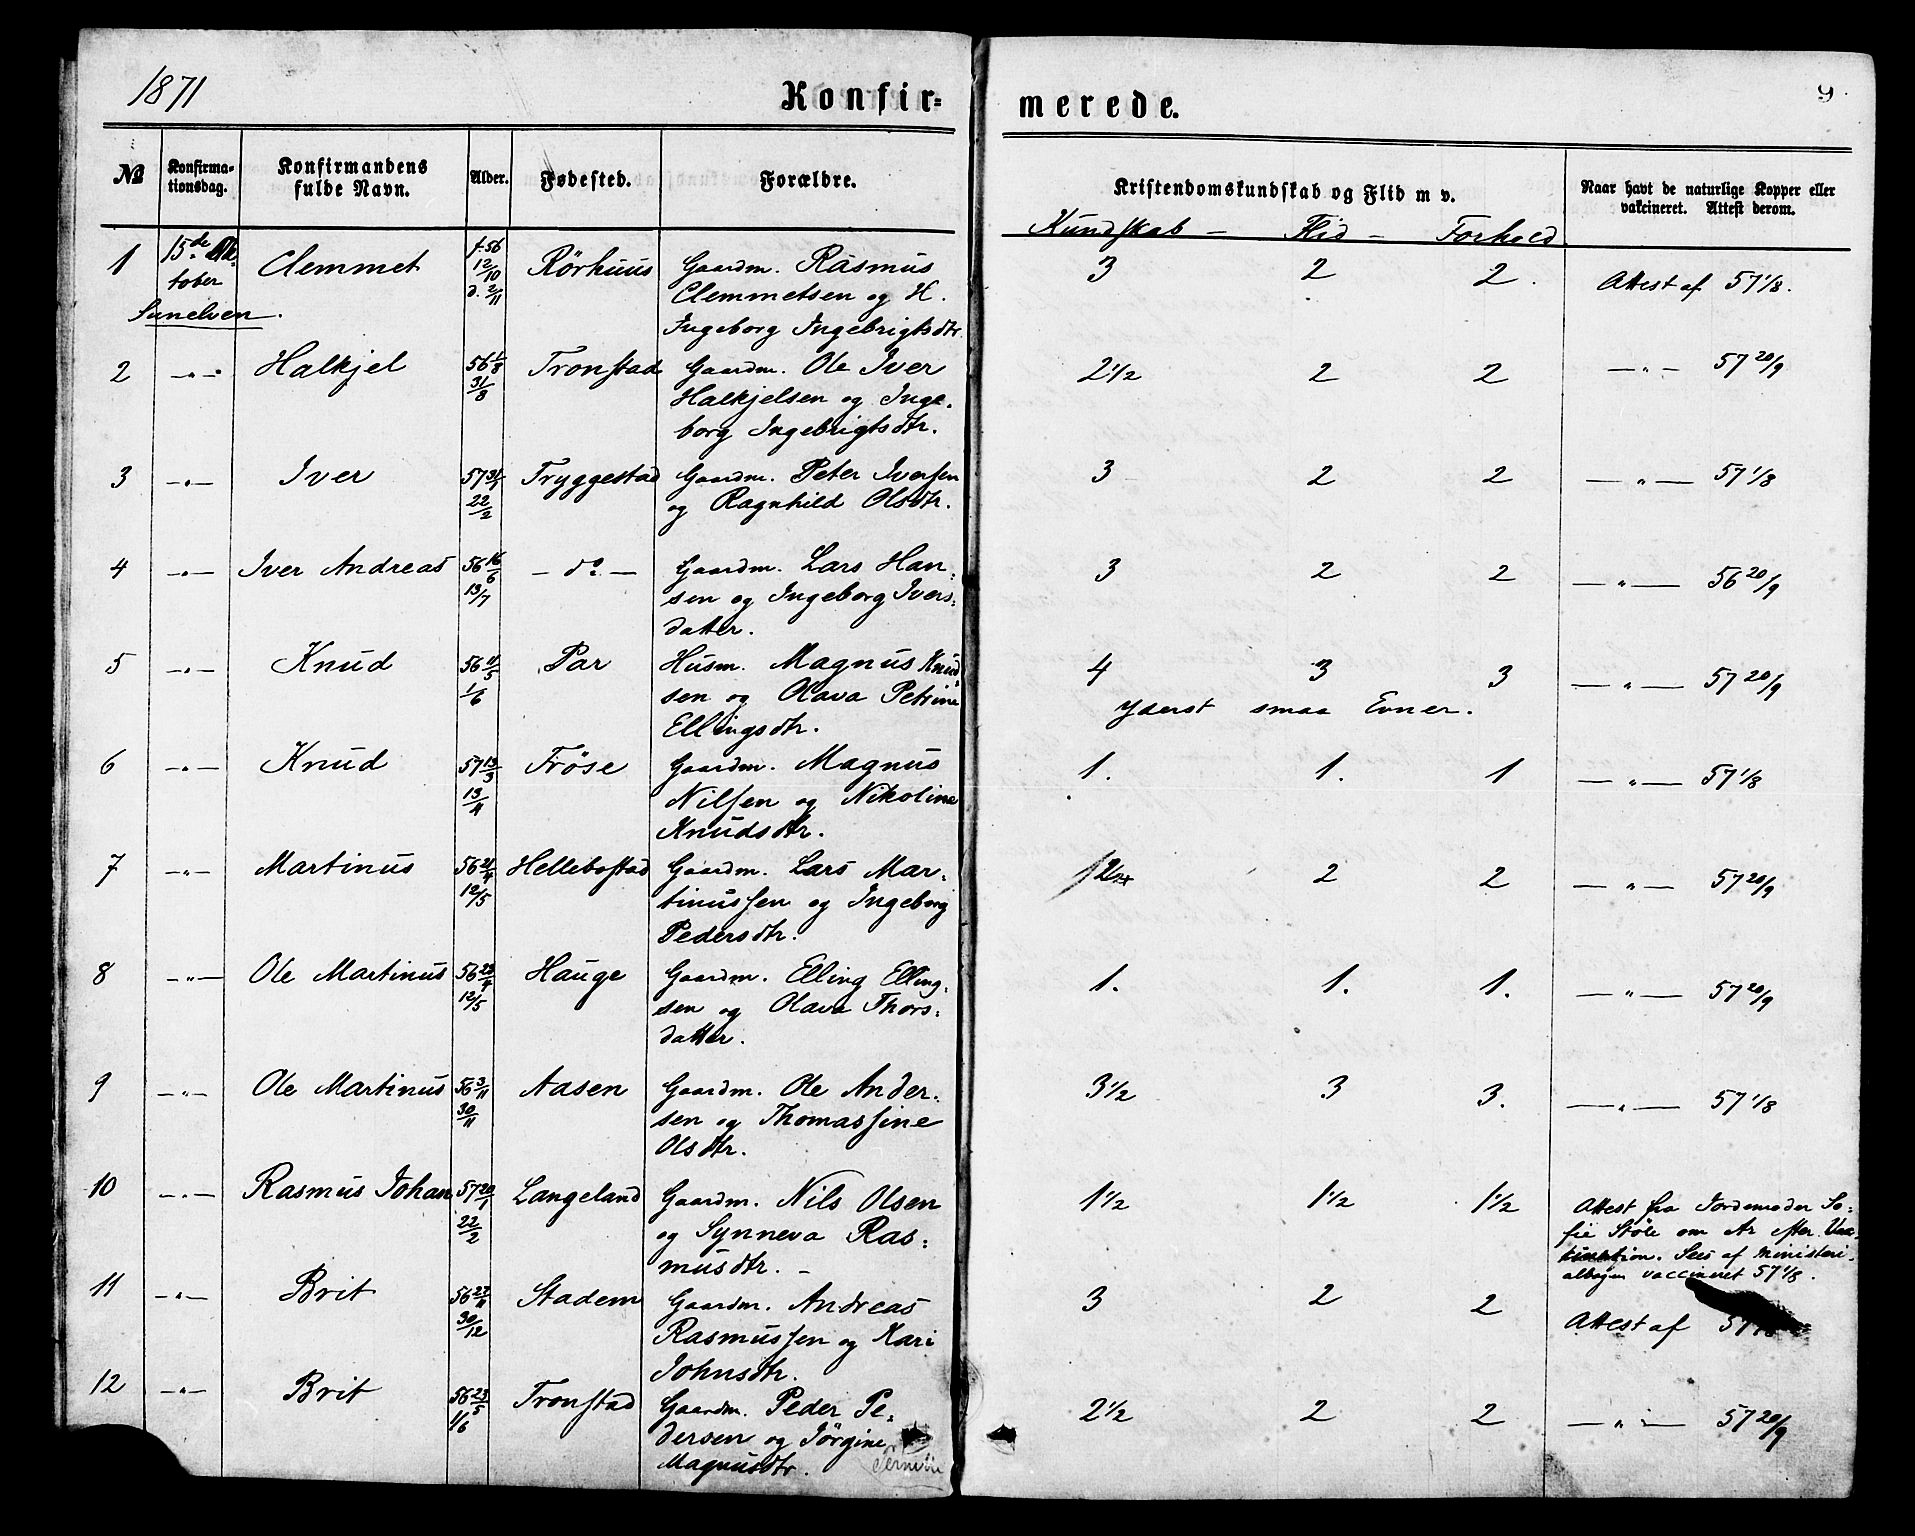 1871
Konfir=
merede.
9.
№
Konfirma-
tionsdag.
Konfirmandens
fulde Navn.
Alder.
Fødested.
Forældre.
Kristendomskundskab og Flid m v.
Naar havt de naturlige Kopper eller
vakcineret. Attest derom.
Kundskab — Flid — Forhold
1 15de Ok- Clemmet f. 56 Rörhuus Gaardm. Rasmus 3 2 2. Attest af 57 1/8.
tober 12/10 Clemmetsen og H.
Sunelven. d. 2/11 Ingeborg Ingebrigtsdtr
2 —„— Halkjel 56 1/8 Tronstad Gaardm. Ole Iver 2 1/2 2 2 —„— 57 20/9
31/8 Halkjelsen og Inge-
borg Ingebrigtsdtr.
3 —„— Iver 57 31/1 Tryggestad Gaardm. Peter Iversen 3 2 2 —„— 57 1/8
22/2 og Ragnhild Olsdtr.
4 —„— Iver Andreas 56 16/6 — do — Gaardm. Lars Han- 3 2 2 —„— 56 20/9
13/7 sen og Ingeborg Ivers-
datter.
5 —„— Knud 56 11/5 Par Husm. Magnus Knud- 4 3 3 —„— 57 20/9
1/6 sen og Olava Petrine yderst smaa Evner.
Ellingsdtr.
6 —„— Knud 57 13/3 Fröse Gaardm. Magnus 1. 1. 1 —„— 57 1/8
13/4 Nilsen og Nikoline
Knudsdtr.
7 —„— Martinus 56 21/4 Hellebostad Gaardm. Lars Mar- 2 2 —„— 57 20/9
12/5 tinussen og Ingeborg
Pedersdtr.
8 —„— Ole Martinus 56 23/4 Hauge Gaardm. Elling Elling- 1. 1. 1. —„— 57 20/9
12/5 sen og Olava Thors-
datter.
9 —„— Ole Martinus 56 3/11 Aasen Gaardm. Ole Ander- 3 1/2 3 3. —„— 57 1/8
30/11 sen og Thomassine
Olsdtr.
10 —„— Rasmus Johan 57 20/1 Langeland Gaardm. Nils Olsen 1 1/2 1 1/2 1 1/2 Attest fra Jordemoder So-
22/2 og Synneva Ras- fie Stöle om Ar efter Vak-
musdtr. — cination. Sees af Ministeri-
albogen vaccineret 57 1/8.
11 —„— Brit 56 23/11 Stadem Gaardm. Andreas 3 2 2 Attest af 57
30/12 Rasmussen og Kari
Johnsdtr.
12 —„— Brit 56 23/5 Tronstad Gaardm. Peder Pe- 2 1/2 2 2 —„— 57 20/9
1/6 dersen og Jörgine
Magnusdtr.